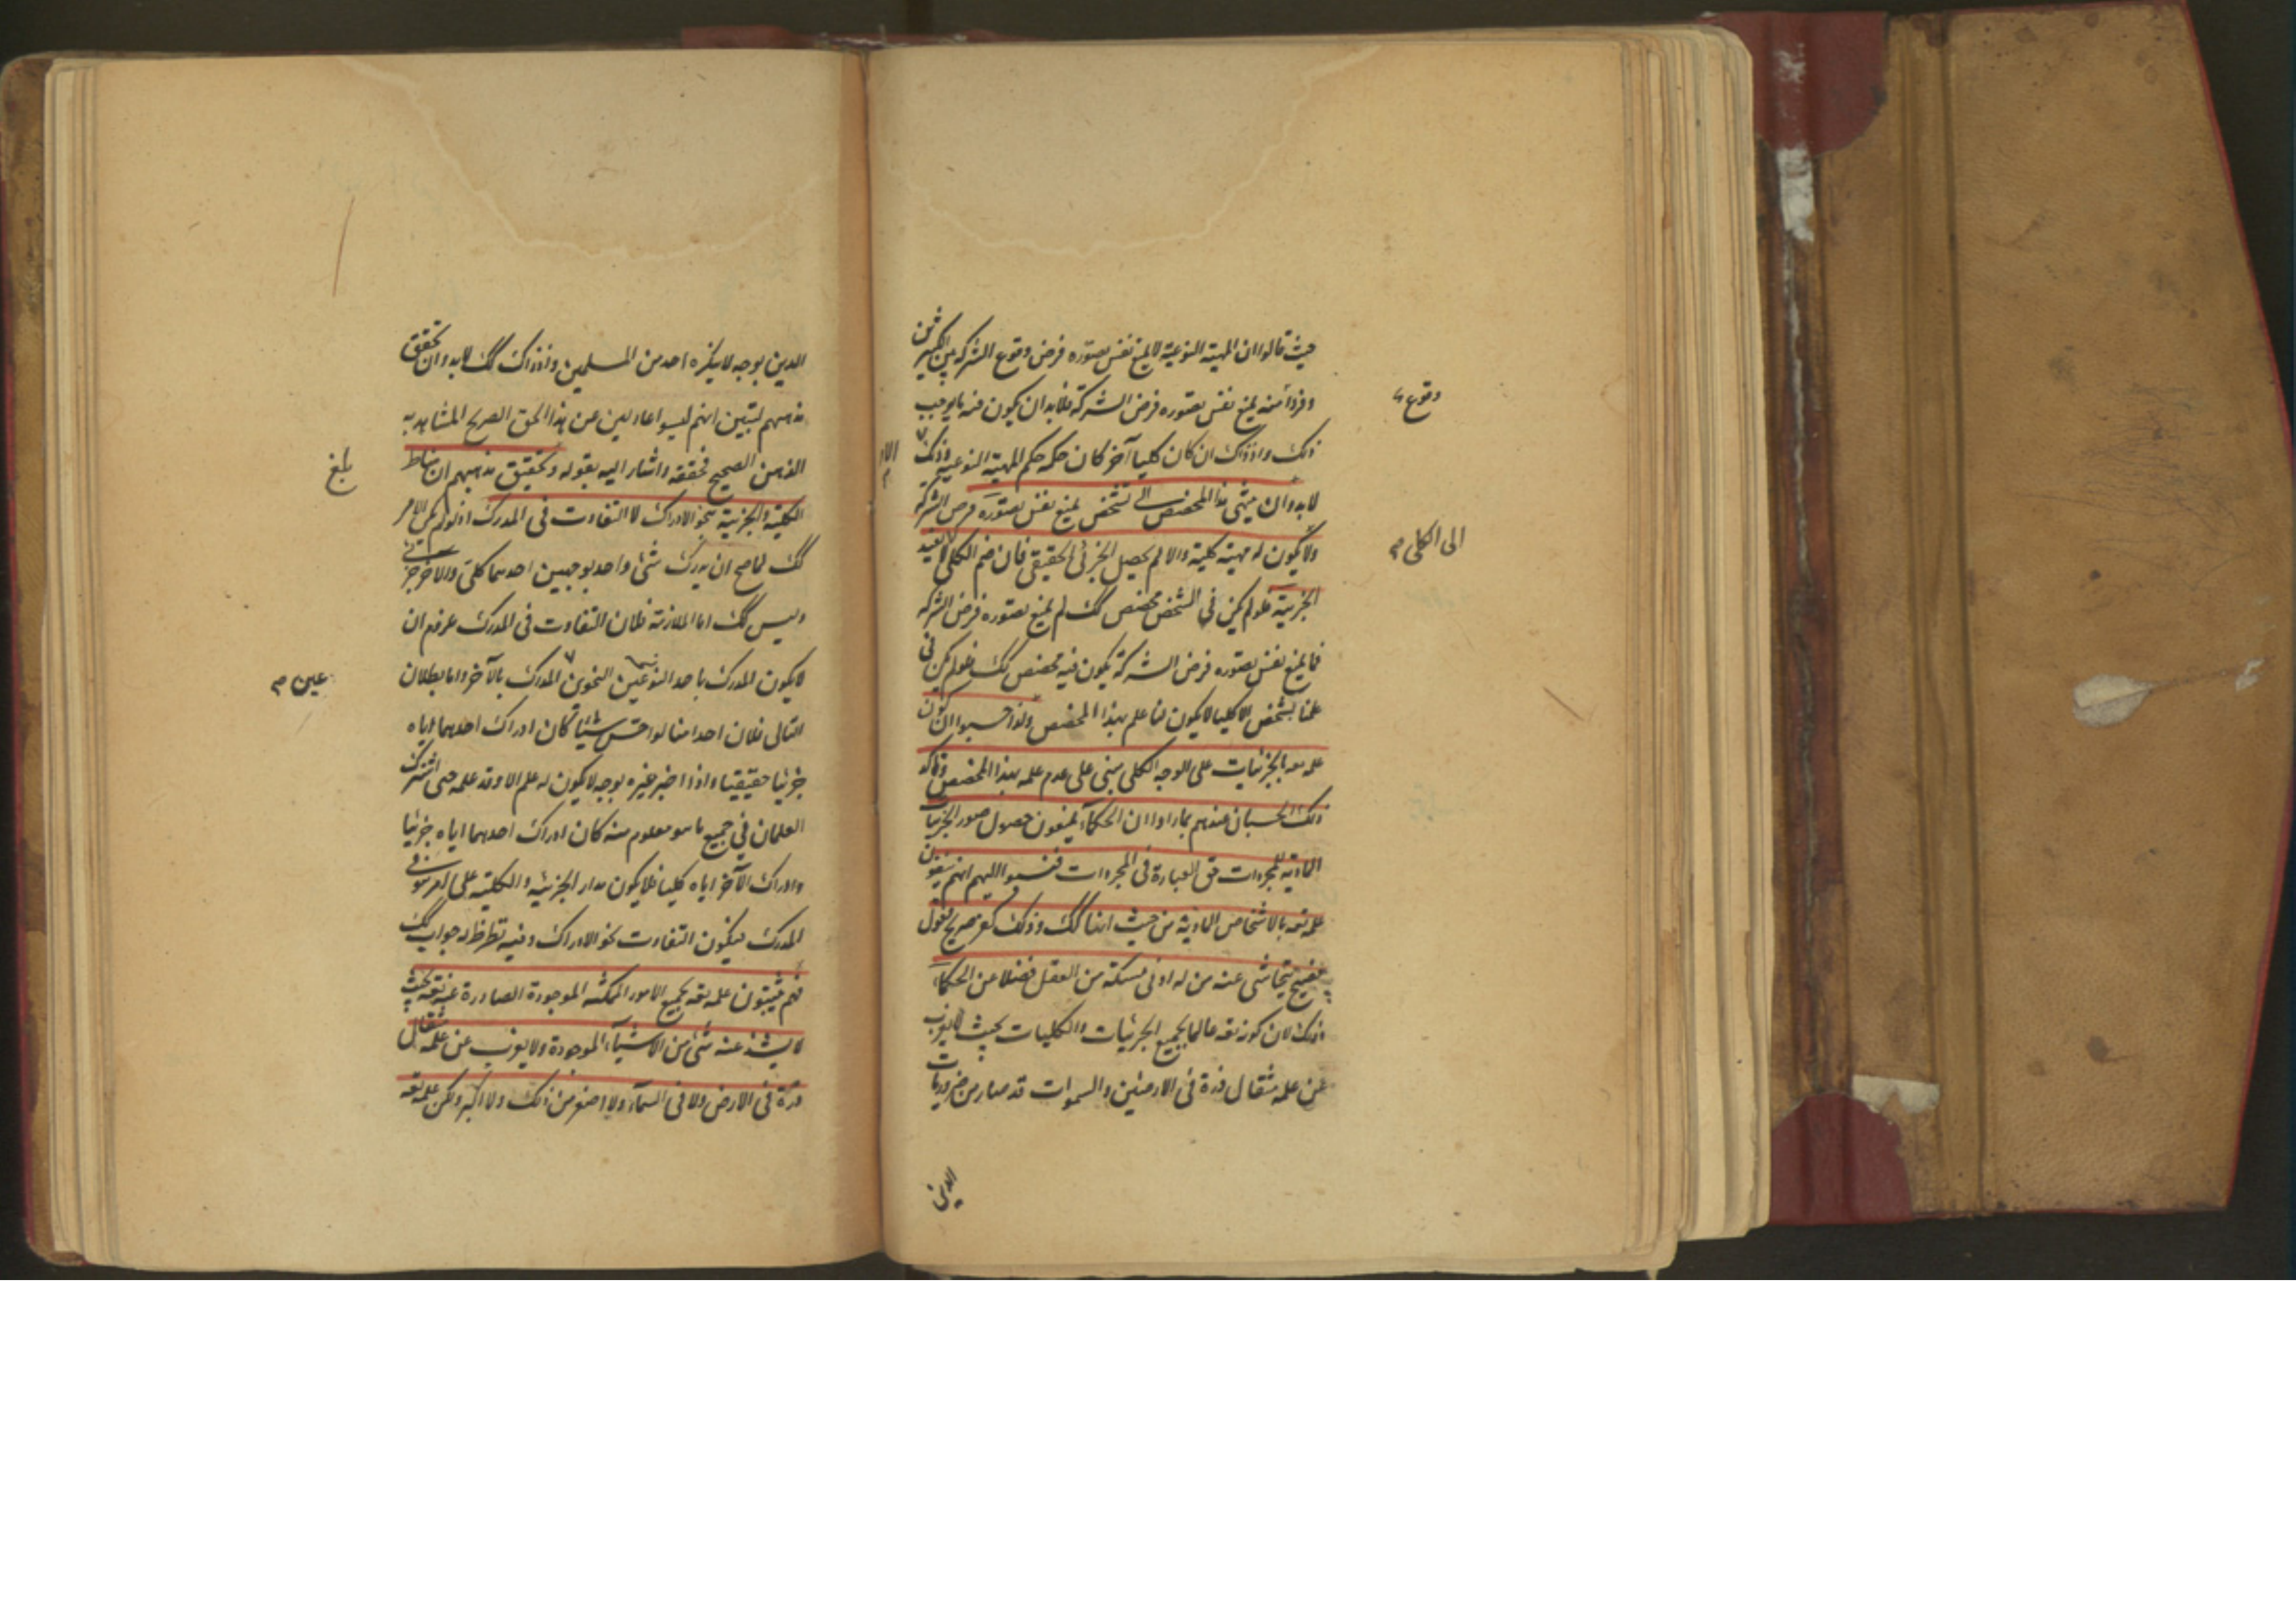 حيث قالوا ان المهية النوعية لا يمنع نفس تصوره فرض وقوع الشركة بين الكثيرين
وفردا منه يمنع نفس تصوره فرض الشركة فلا بد ان يكون فيه ما يوجب
وقوع
ذلك واذ ذاك ان كان كليا آخر كان حكمه حكم المهية النوعية وذلك
لا بد وان ينتهى هذا المخصص الى تشخص يمنع نفس تصوره فرض الشركة
الى الكلى م
ولا يكون له مهية كلية والا لم يحصل الجزئى الحقيقى فان ضم الكلى لا يفيد
الجزئية فلو لم يكن فى الشخص مخصص كك لم يمنع تصوره فرض الشركة
فما يمنع نفس تصوره فرض الشركة يكون فيه مخصص كك فلو لم يكن فى
علمنا بشخص الا كليا لا يكون لنا علم بهذا المخصص ولذا حسبوا ان كون
علمه تعه بالجزئيات على الوجه الكلى مبنى على عدم علمه بهذا المخصص وتاكد
ذلك الحسبان عندهم بما راوا ان الحكمآء يمنعون حصول صور الجزئيات
المادية للمجردات فى المجردات فنسبوا اليهم انهم ينفون
علمه تعه بالاشخاص المادية من حيث انها كك وذلك كفر صريح وقول
فضيح يتحاشى عنه من له ادنى مسكة من العقل فضلا عن الحكمآء
وذلك لان كونه تعه عالما بجميع الجزئيات والكليات بحيث لا يعزب
عن علمه مثقال ذرة فى الارضين والسموات قد صار من ضروريات
الدين
الدين بوجه لا ينكره احد من المسلمين واذ ذاك كك لا بد وان تحقق
مذهبهم ليتبين انهم ليسوا عادلين عن هذا الحق الصريح المشاهد به
الذهن الصحيح فحققه واشار اليه بقوله وتحقيق مذهبهم ان مناط
بلغ
الكلية والجزئية نحو الادراك لا التفاوت فى المدرك اذ لو لم يكن الامر
كك لما صح ان يدرك شئ واحد بوجهين احدهما كلى والاخر جزئى
وليس كك اما الملازمة فلان التفاوت فى المدرك
لا يكون المدرك باحد النحوين المدرك بالآخر واما بطلان
عين م
التالى فلان احدا منا لو احس شيئا كان ادراك احدهما اياه
جزئيا حقيقيا واذا اخبر غيره بوجه لا يكون له علم الا وقد علمه حتى اشترك
العلمان فى جميع ما هو معلوم منه كان ادراك احدهما اياه جزئيا
وادراك الآخر اياه كليا فلا يكون مدار الجزئية والكلية على امر هو فى
المدرك فيكون التفاوت نحو الادراك وفيه نظر ظهر جوابه كك
فهم يثبتون علمه تعه بجميع الامور الممكنه الموجودة الصادرة عنه تعه بحيث
لا يشذ عنه شئ من الاشيآء الموجودة ولا يعزب عن علمه مثقال
ذرة فى الارض ولا فى السمآء ولا اصغر من ذلك ولا اكبر ولكن علمه تعه